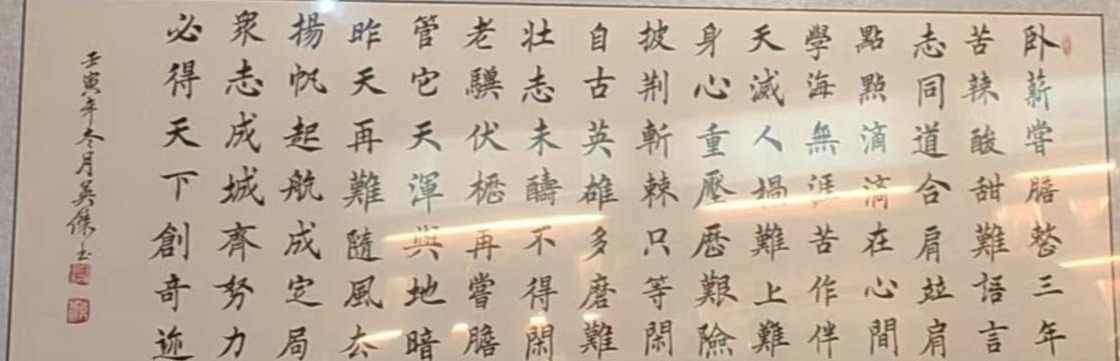 卧薪嘗膽整三年
苦辣酸甜難語言
志同道合肩並肩
點點滴滴在心間
學海無涯苦作伴
天滅人禍難上難
身心重壓歷艱險
披荆斬棘只等閑
自古英雄多磨難
壮志未醻不得閑
老驥伏櫪再嘗膽
管它天渾與地暗
昨天再難隨風去
揚帆起航成定局
衆志成城齊努力
必得天下創奇迹
壬寅年冬月